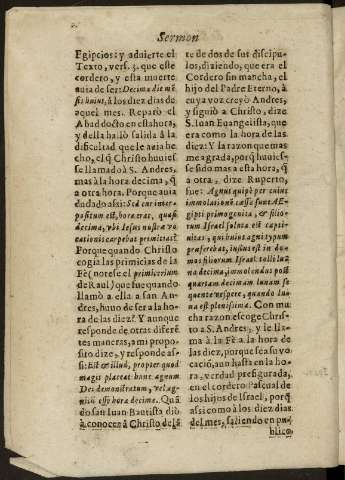 Sermon
Egipcios: y aduierte el
Texto, vers. 3. que este
cordero, y esta muerte
auia de ser: Decima die mẽ
sis huius, à los diez dias de
aquel mes. Reparò el
Abad docto en esta hora,
y della hallò salida à la
dificultad que le auia he
cho, el q̃ Christo huuies
se llamado à S. Andres,
mas à la hora decima, q̃
a otra hora. Porque auia
dudado assi: Sed cur inter-
positum est, hora erat, quasi
decima, vbi Iesus nostra vo
cationis carpebat primitias?
Porque quando Christo
cogia las primicias de la
Fè (notese el primicerium
de Raul) que fue quando
llamò a ella a san An-
dres, huuo de ser a la ho
ra de las diez? Y aunque
responde de otras diferẽ
tes maneras, a mi propo
sito dize, y responde as-
si: Est & illud, propter quod
magis placeat hunc agnum
Dei demonstratum, vel ag-
nitũ esse hora decima. Quã
do san Iuan Bautista diò
à conocer à Christo delã
te de dos de sus discipu-
los, diziendo, que era el
Cordero sin mancha, el
hijo del Padre Eterno, à
cuya voz creyò Andres,
y siguiò a Christo, dize
S. Iuan Euangelista, que
era como la hora de las
diez: Y la razon que mas
me agrada, porq̃ huuies
se sido mas a esta hora, q̃
à otra, dize Ruperto,
fue: Agnus quipè per cuius
immolationẽ cæsa sunt AE-
gipti primogenita, & filio-
rum Israel soluta est capti-
uitas, qui huius agni typum
præferebat, iussus est in do-
mos filiorum Israel tolli lu-
na decima, immolendus post
quartam decimam lunam se
quente vespere, quando lu-
na est plenissima. Con mu
cha razon escoge Chris-
to a S. Andres, y le lla-
ma à la Fè a la hora de
las diez, porque sea su vo
cació, aun hasta en la ho-
ra, verdad prefigurada,
en el cordero Pascual de
los hijos de Israel, porq̃
assi como à los diez dias
del mes, saliendo en pu-
blico